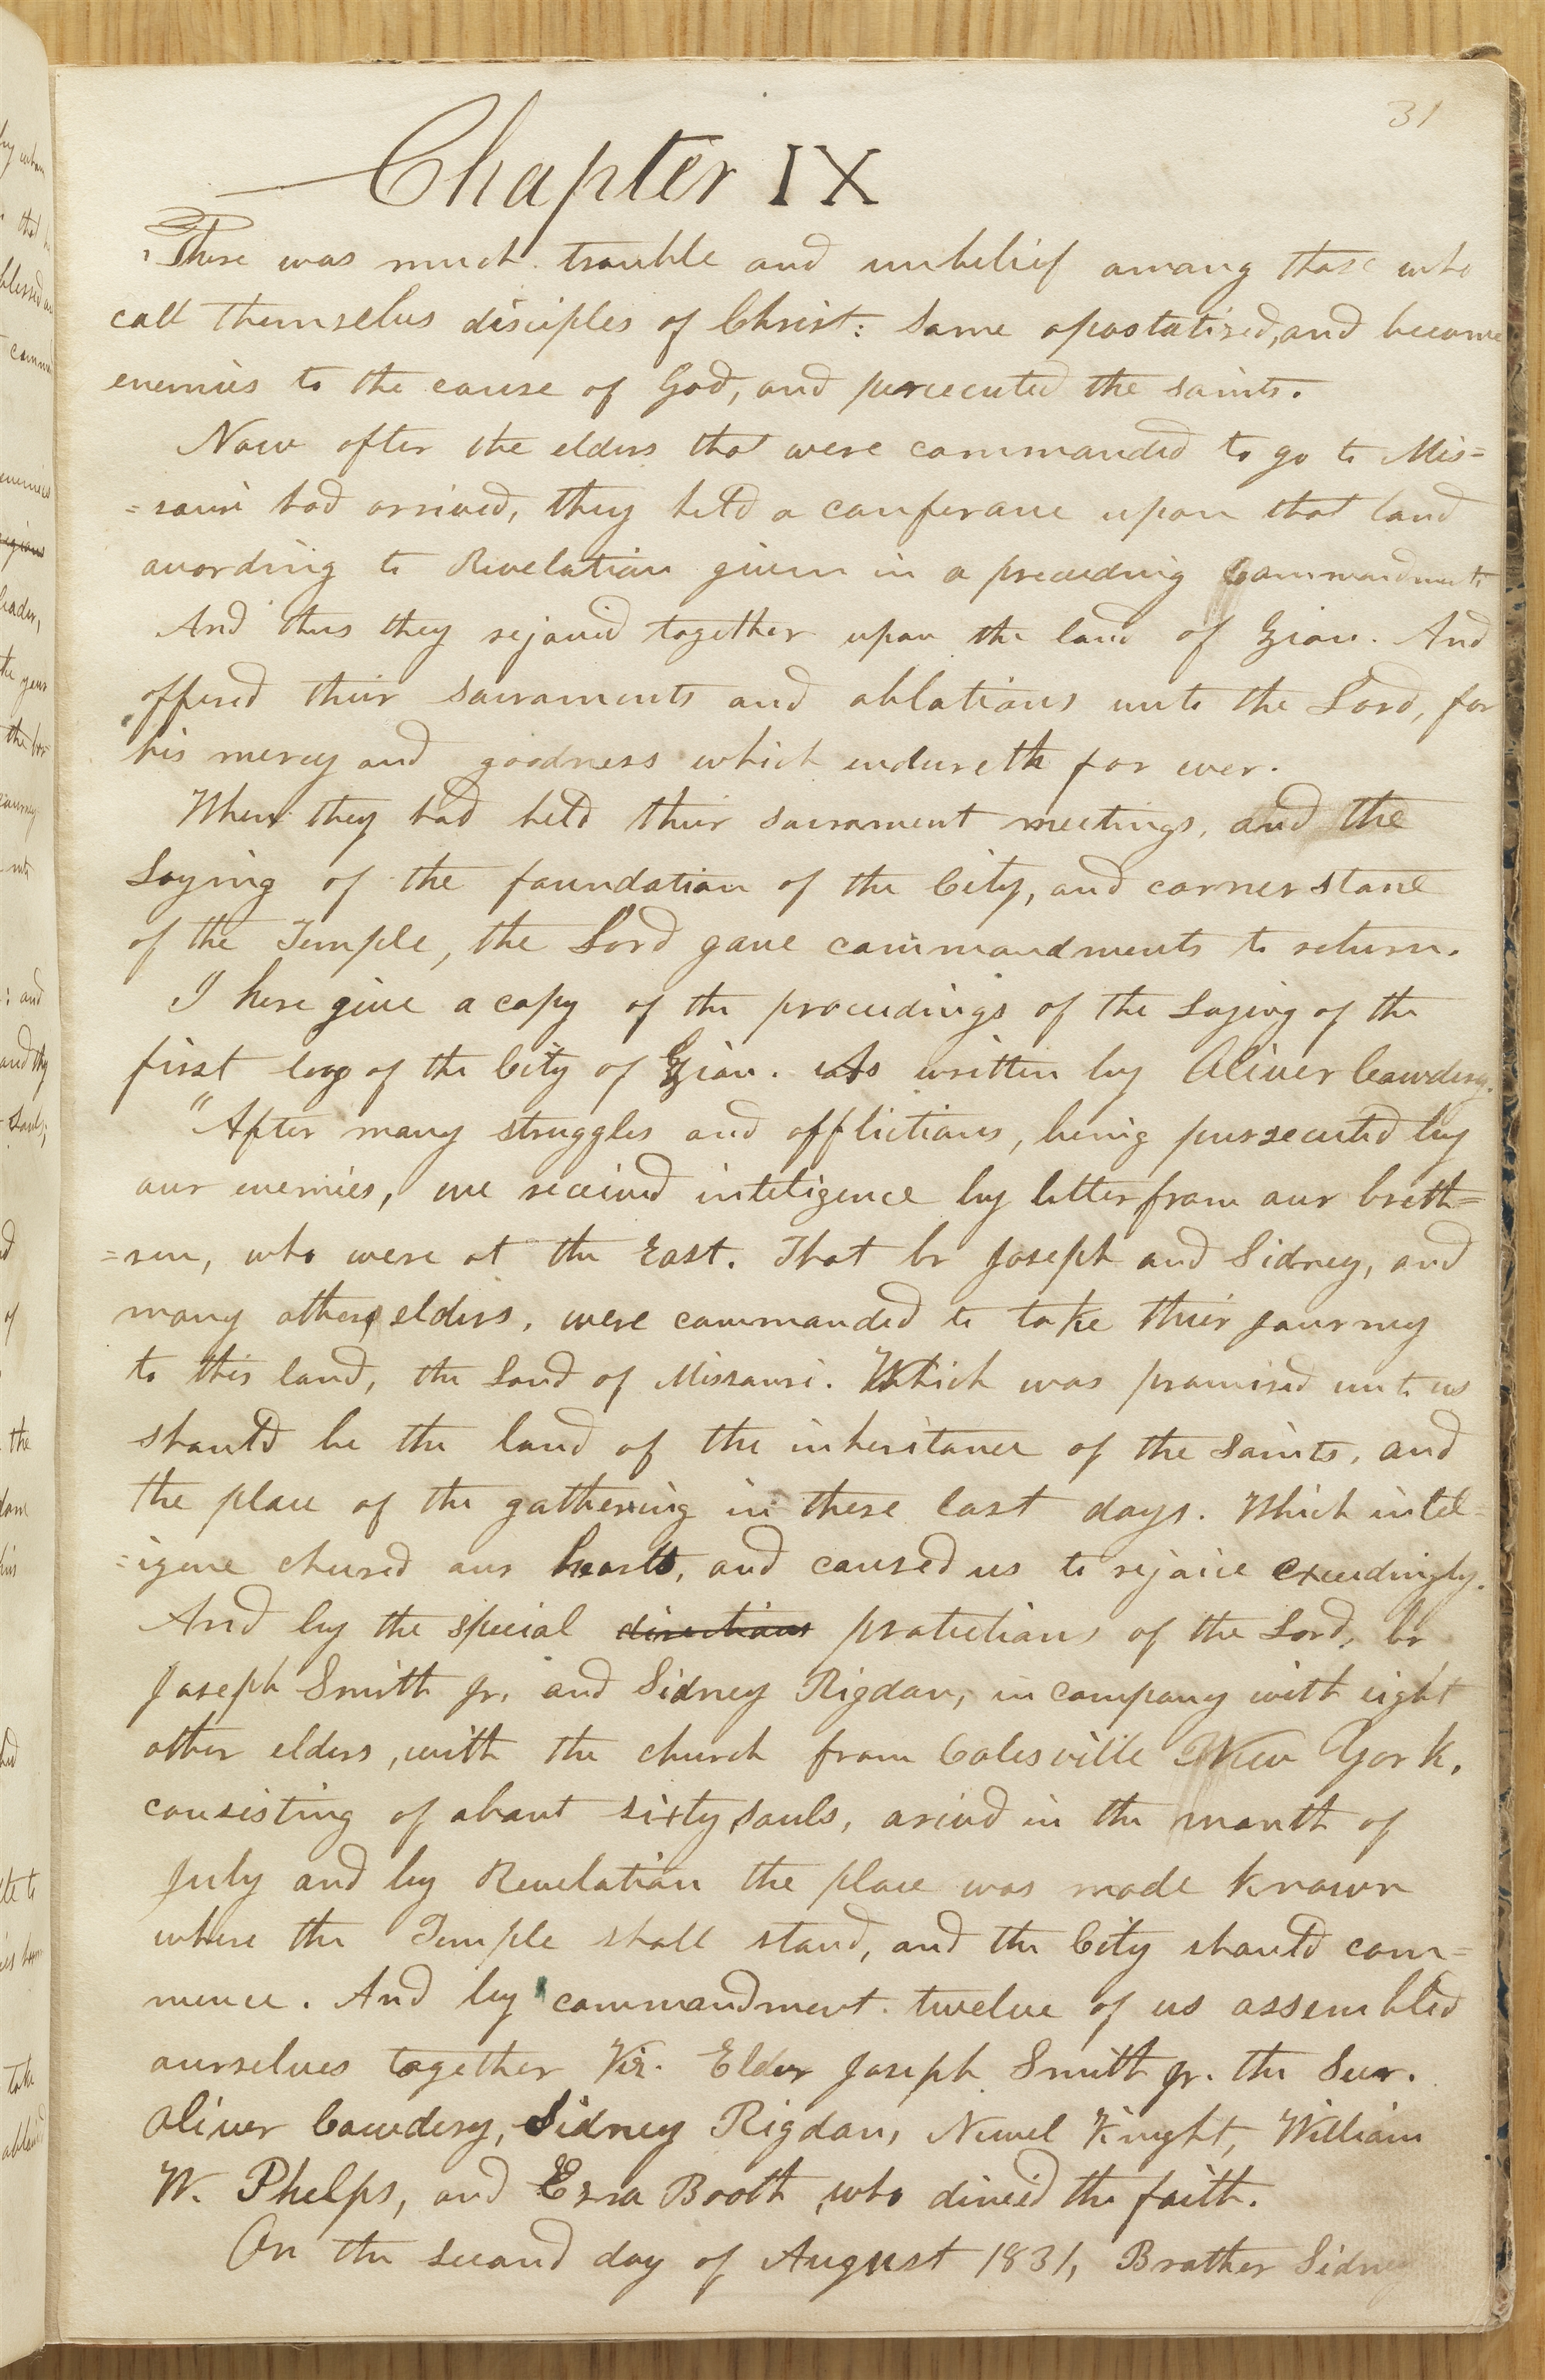 31
Chapter IX
There was much trouble and unbelief among those who
call themselves disciples of Christ: Some apostatised, and became
enemies to the cause of God, and persecuted the saints.
Now after the elders that were commanded to go to Mis=
=souri had arrived, they held a conferance upon that land
according to Revelation given in a preceeding commandment.
And thus they rejoiced together upon the land of Zion. And
offered their sacraments and oblations unto the Lord, for
his mercy and goodness which endureth for ever.
When they had held their sacrament meetings, and the
Laying of the foundation of the City, and corner stone
of the Temple, the Lord gave commandments to return.
I here give a copy of the proceedings of the Laying of the
first log of the City of Zion. As written by Oliver Cowdery.
"After many struggles and afflictions, being persecuted by
our enemies, we received inteligence by letter from our breth=
=ren, who were at the East. That br Joseph and Sidney, and
many other elders, were commanded to take their journey
to this land, the Land of Missouri. Which was promised unto us
should be the land of the inheritance of the Saints, and
the place of the gathering in these last days. Which intel=
=igence cheered our hearts, and caused us to rejoice exceedingly.
And by the special directions protections of the Lord, br
Joseph Smith jr. and Sidney Rigdon, in company with eight
other elders, with the church from Colesville New York,
consisting of about sixty souls, arived in the month of
July and by Revelation the place was made known
where the Temple shall stand, and the City should com=
mence. And by commandment. twelve of us assembled
ourselves together Viz. Elder Joseph Smith jr. the Seer.
Oliver Cowdery, Sidney Rigdon, Newel Knight, William
W. Phelps, and Ezra Booth who denied the faith.
On the second day of August 1831, Brother Sidney